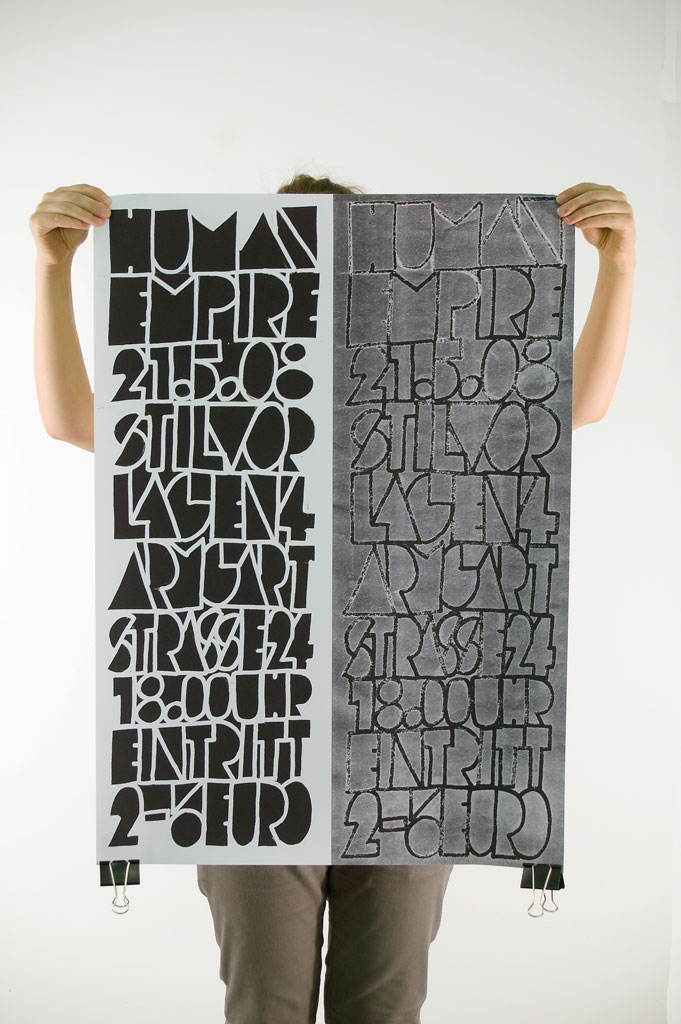 HUMAN
EMPIRE
21.5.08
STILVOR
LAGEN4
ARMGART
STRASSE24
18.00UHR
EINTRITT
2-6EURO
HUMAN
EMPIRE
21.5.08
STILVOR
LAGEN4
ARMGART
STRASSE24
18.00UHR
EINTRITT
2-6EURO